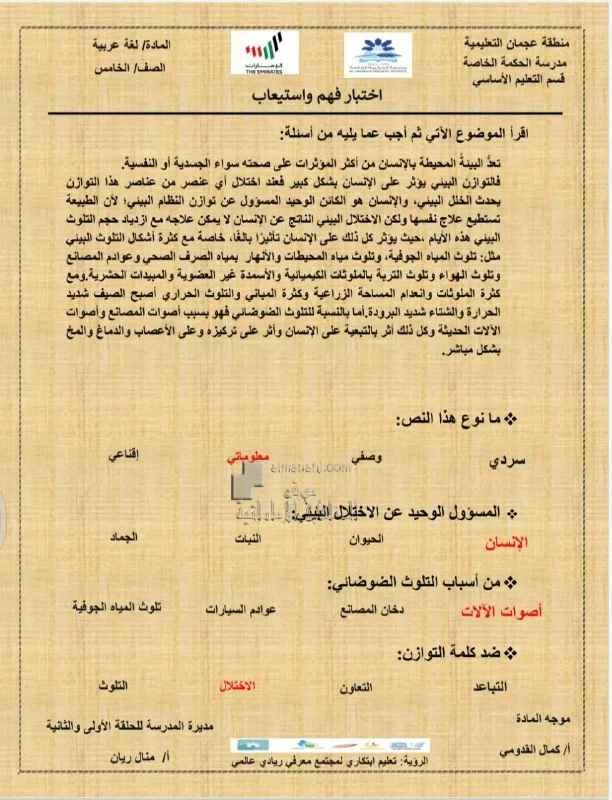 منطقة عجمان التعليمية
مدرسة الحكمة الخاصة
قسم التعليم الأساسي
الإمارات
THE EMIRATES
المادة/ لغة عربية
الصف/ الخامس
اختبار فهم واستيعاب
اقرأ الموضوع الآتي ثم أجب عما يليه من أسئلة:
تعدُّ البيئةُ المحيطة بالإنسان من أكثر المؤثرات على صحته سواء الجسدية أو النفسية.
فالتوازن البيئي يؤثر على الإنسان بشكل كبير فعند اختلال أي عنصر من عناصر هذا التوازن
يحدث الخلل البيئي، والإنسان هو الكائن الوحيد المسؤول عن توازن النظام البيئي؛ لأن الطبيعة
تستطيع علاج نفسها ولكن الاختلال البيئي الناتج عن الإنسان لا يمكن علاجه مع ازدياد حجم التلوث
البيئي هذه الأيام ،حيث يؤثر كل ذلك على الإنسان تأثيرًا بالغًا، خاصة مع كثرة أشكال التلوث البيئي
مثل: تلوث المياه الجوفية، وتلوث مياه المحيطات والأنهار بمياه الصرف الصحي وعوادم المصانع
وتلوث الهواء وتلوث التربة بالملوثات الكيميائية والأسمدة غير العضوية والمبيدات الحشرية.ومع
كثرة الملوثات وانعدام المساحة الزراعية وكثرة المباني والتلوث الحراري أصبح الصيف شديد
الحرارة والشتاء شديد البرودة.أما بالنسبة للتلوث الضوضائي فهو بسبب أصوات المصانع وأصوات
الآلات الحديثة وكل ذلك أثر بالتبعية على الإنسان وأثر على تركيزه وعلى الأعصاب والدماغ والمخ
بشكل مباشر.
❖ ما نوع هذا النص:
سردي وصفي معلوماتي إقناعي
almanahj.com
موقع
المناهج الإماراتية
❖ المسؤول الوحيد عن الاختلال البيئي:
الإنسان الحيوان النبات الجماد
❖ من أسباب التلوث الضوضائي:
أصوات الآلات دخان المصانع عوادم السيارات تلوث المياه الجوفية
❖ ضد كلمة التوازن:
التباعد التعاون الاختلال التلوث
موجه المادة
مديرة المدرسة للحلقة الأولى والثانية
أ/ كمال القدومي
أ/ منال ريان
الرؤية: تعليم ابتكاري لمجتمع معرفي ريادي عالمي